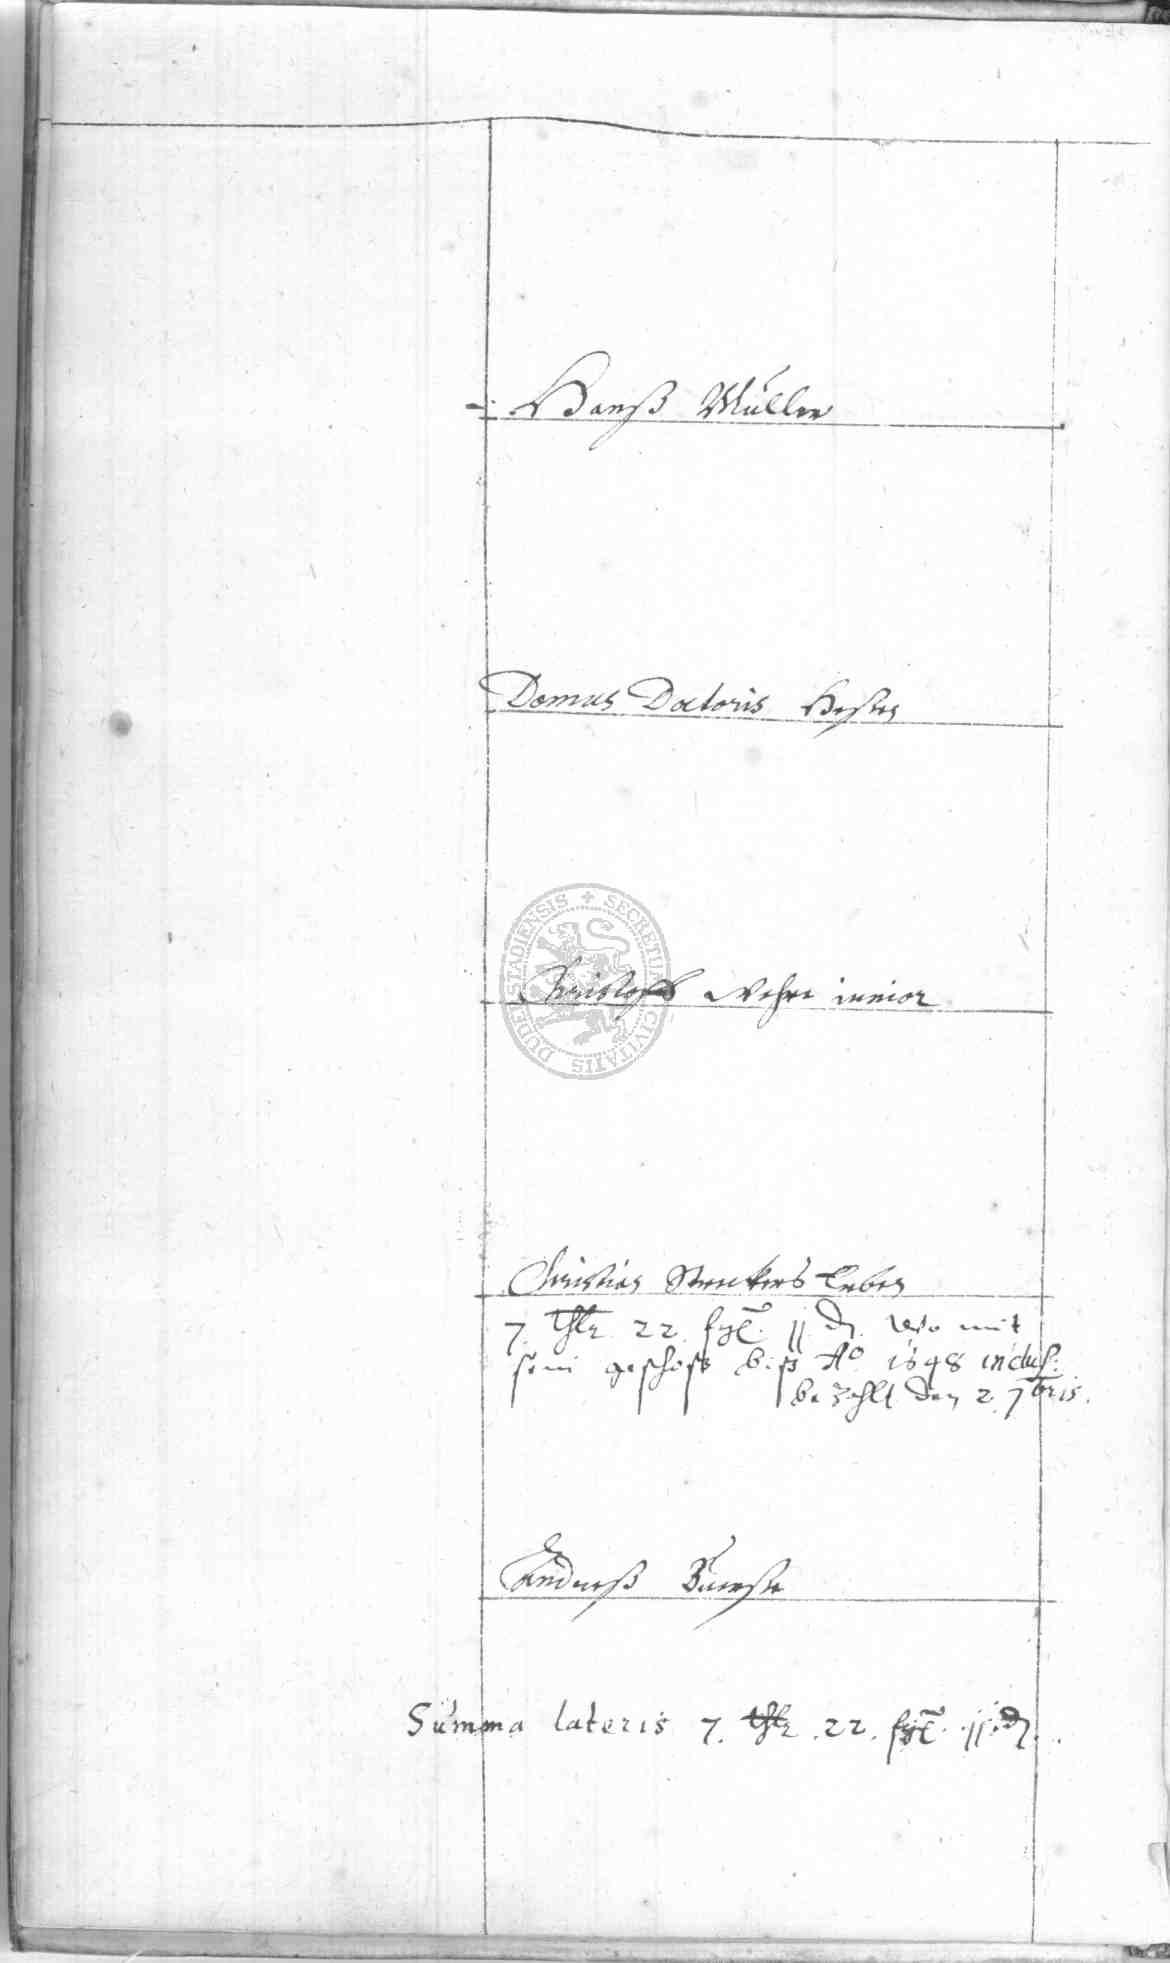 Hanß Müller
Domus Doctoris
SECRETUM CIVITATIS DUDERSTADIENSIS
Christoff Wehre iunior
Christian Strukers Erben
7. thlr 22 sgl. 11 d. Wo mit
sein geschoß biß Ao 1648 inclus:
bezahlt den 2. 7bris.
Andreß
Summa lateris 7. thlr .22. sgl. 11. d.